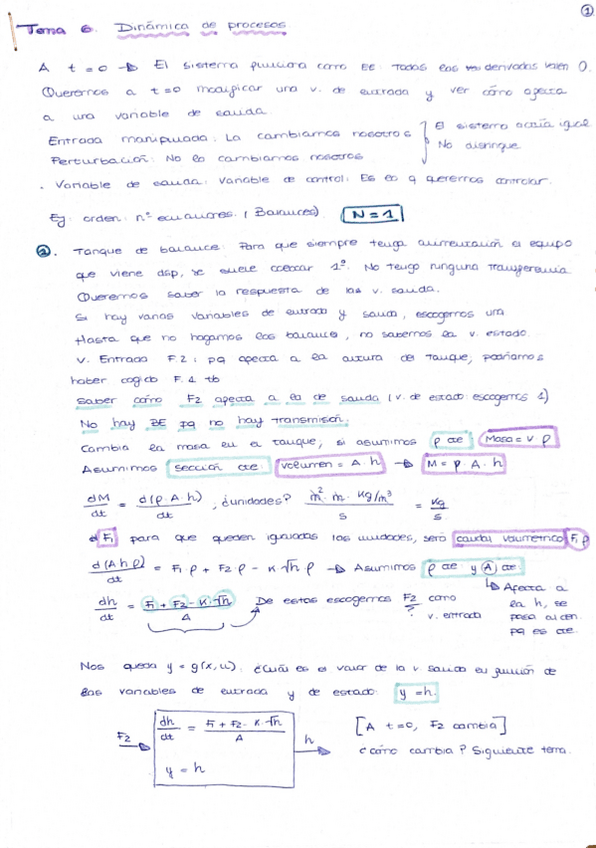 1
Tema 6. Dinámica de procesos.
A t=0 → El sistema funciona como EE: Todas las derivadas valen 0.
Queremos a t=0 modificar una v. de entrada y ver cómo afecta
a una variable de salida.
Entrada manipulada: La cambiamos nosotros } El sistema actúa igual
Perturbación: No la cambiamos nosotros No distingue
. Variable de salida: Variable de control: Es lo q queremos controlar.
Eg: orden: nº ecuaciones. (Balances) N=1
2. Tanque de balance: Para que siempre tenga alimentación el equipo
que viene dsp, se suele colocar 1º. No tengo ninguna transferencia
Queremos saber la respuesta de las v. salida.
Si hay varias variables de entrada y salida, escogemos una
Hasta que no hagamos los balances, no sabemos la v. estado.
v. Entrada F2: pq afecta a la altura del tanque; podríamos
haber cogido F1 tb
Saber cómo F2 afecta a la de salida (v. de estado: escogemos 1)
No hay BE pq no hay transmisión.
Cambia la masa en el tanque, si asumimos ρ cte Masa = V ρ
Asumimos sección cte: volumen = A·h → M = ρ·A·h
dM/dt = d(ρ·A·h)/dt ; ¿unidades? m²·m·kg/m³ / s = kg/s
F1 para que queden igualadas las unidades, será caudal volumétrico F1 ρ
d(Ahρ)/dt = F1·ρ + F2·ρ - K√h·ρ → Asumimos ρ cte y A cte.
dh/dt = F1 + F2 - K·√h / A De estas escogemos F2 como v. entrada
↳ Afecta a
la h, se
pasa al den.
pq es cte.
Nos queda y = g(x,u). ¿Cuál es el valor de la v salida en función de
las variables de entrada y de estado: y = h.
F2 → dh/dt = F1 + F2 - K·√h / A h → [A t=0, F2 cambia]
y = h ¿cómo cambia? Siguiente tema.